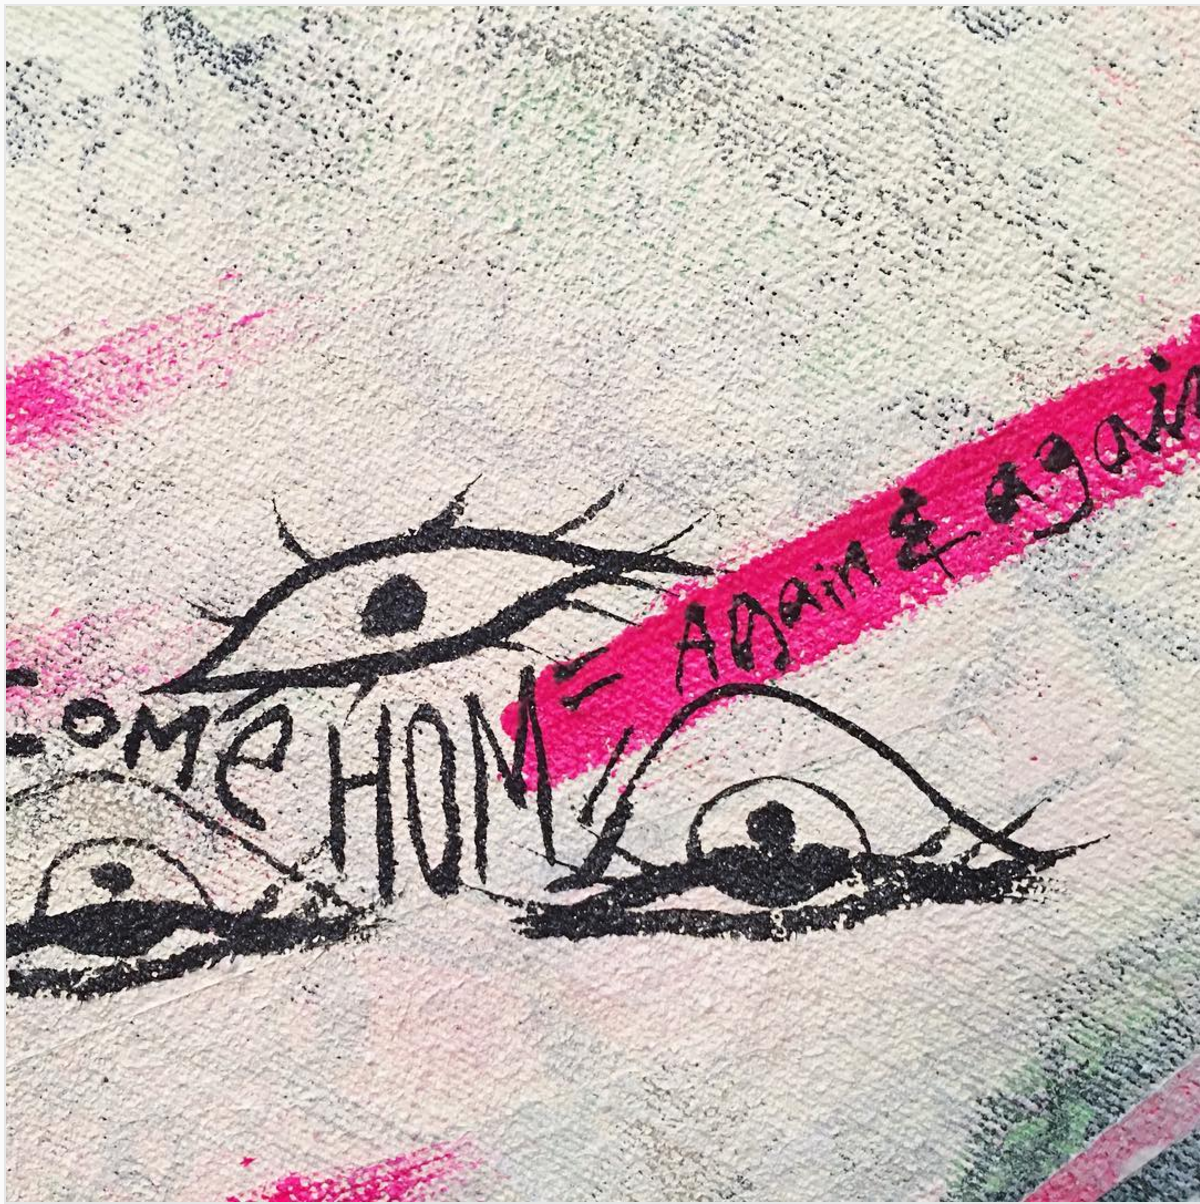 ome HOM = Again & again